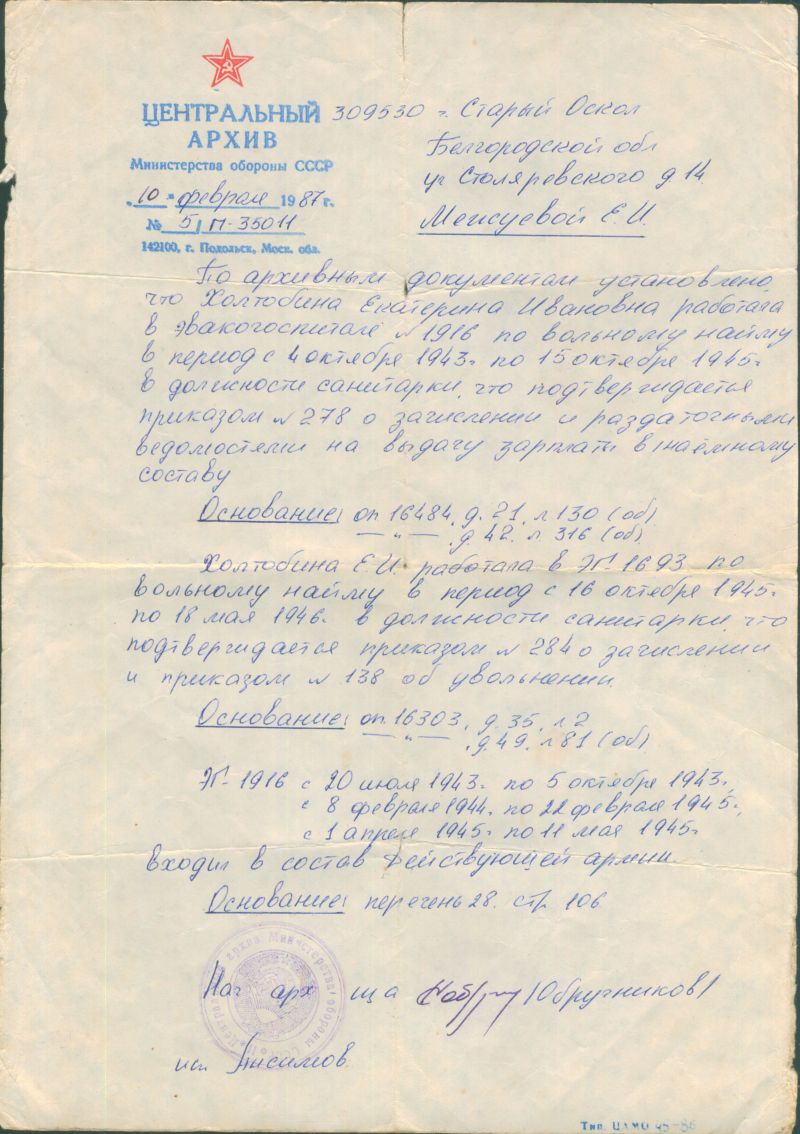 ЦЕНТРАЛЬНЫЙ
АРХИВ
Министерства обороны СССР
"10" февраля 1987 г.
№ 5/П-35011
142100, г. Подольск, Моск. обл.
309530 г. Старый Оскол
Белгородской обл
ул Столяревского д 14
Меисуевой Е.И.
По архивным документам установлено,
что Холтобина Екатерина Ивановна работала
в эвакогоспитале №1916 по вольному найму
в период с 4 октября 1943г по 15 октября 1945г
в должности санитарки, что подтверждается
приказом №278 о зачислении и раздаточными
ведомостями на выдачу зарплаты в/наёмному
составу
Основание: оп. 16484, д. 21, л 130 (об)
— " — , д. 42. л. 316 (об).
Холтобина Е.И. работала в ЭГ-1693 по
вольному найму в период с 16 октября 1945г
по 18 мая 1946г. в должности санитарки, что
подтверждается приказом №284 о зачислении
и приказом №138 об увольнении.
Основание: оп. 16303, д. 35, л 2
— " — , д. 49, л 81 (об)
ЭГ-1916 с 20 июля 1943г. по 5 октября 1943г,
с 8 февраля 1944г. по 22 февраля 1945г,
с 1 апреля 1945г по 11 мая 1945г
входил в состав Действующей армии.
Основание: перечень 28. стр. 106
Нач арх ща /Обручников/
исп Анисимов.
Тип. ЦАМО 95-86